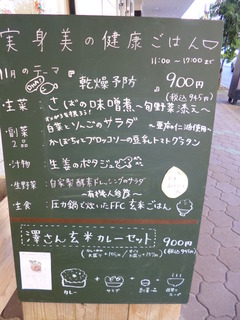 実身美の健康ごはん
11:00〜17:00まで
11月のテーマ
乾燥予防
900円
(税込945円)
・主菜：さばの味噌煮〜旬野菜添え〜
・副菜2品
白菜とりんごのサラダ
〜亜麻仁油使用〜
かぼちゃとブロッコリーの豆乳トマトグラタン
・汁物：生姜のポタージュ
・生野菜：自家製酵素ドレッシングのサラダ
・主食：圧力鍋で炊いたFFC玄米ごはん
澤さん玄米カレーセット
900円
(税込945円)
カレー + サラダ +